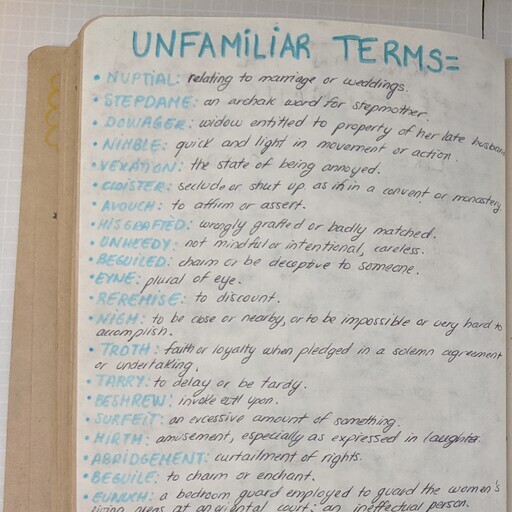 UNFAMILIAR TERMS=
• NUPTIAL: relating to marriage or weddings.
• STEPDAME: an archaic word for stepmother.
• DOWAGER: widow entitled to property of her late husband
• NIMBLE: quick and light in movement or action.
• VEXATION: the state of being annoyed.
• CLOISTER: seclude or shut up as if in a convent or monastery
• AVOUCH: to affirm or assert.
• MISGRAFTED: wrongly grafted or badly matched.
• UNHEEDY: not mindful or intentional, careless.
• BEGUILED: charm or be deceptive to someone.
• EYNE: plural of eye.
• REREMISE: to discount.
• NIGH: to be close or nearby, or to be impossible or very hard to
accomplish.
• TROTH: faith or loyalty when pledged in a solemn agreement
or undertaking.
• TARRY: to delay or be tardy.
• BESHREW: invoke evil upon.
• SURFEIT: an excessive amount of something.
• MIRTH: amusement, especially as expressed in laughter.
• ABRIDGEMENT: curtailment of rights.
• BEGUILE: to charm or enchant.
• EUNUCH: a bedroom guard employed to guard the women's
living areas at an oriental court; an ineffectual person.